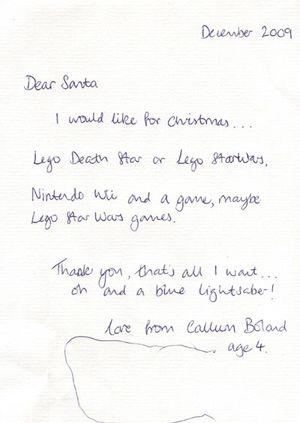 December 2009
Dear Santa
I would like for Christmas...
Lego Death Star or Lego StarWars.
Nintendo Wii and a game, maybe
Lego Star Wars games.
Thank you, that's all I want...
oh and a blue lightsaber!
love from Callum Boland
age 4.